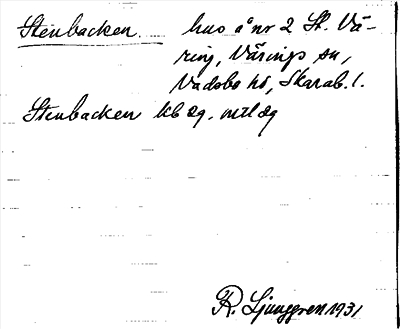 Stenbacken. hus å nr 2 St. Vä-
ring, Värings sn,
Vadsbo hd, Skarab. l.
Stenbacken kb äg. metl äg
R. Ljunggren 1931